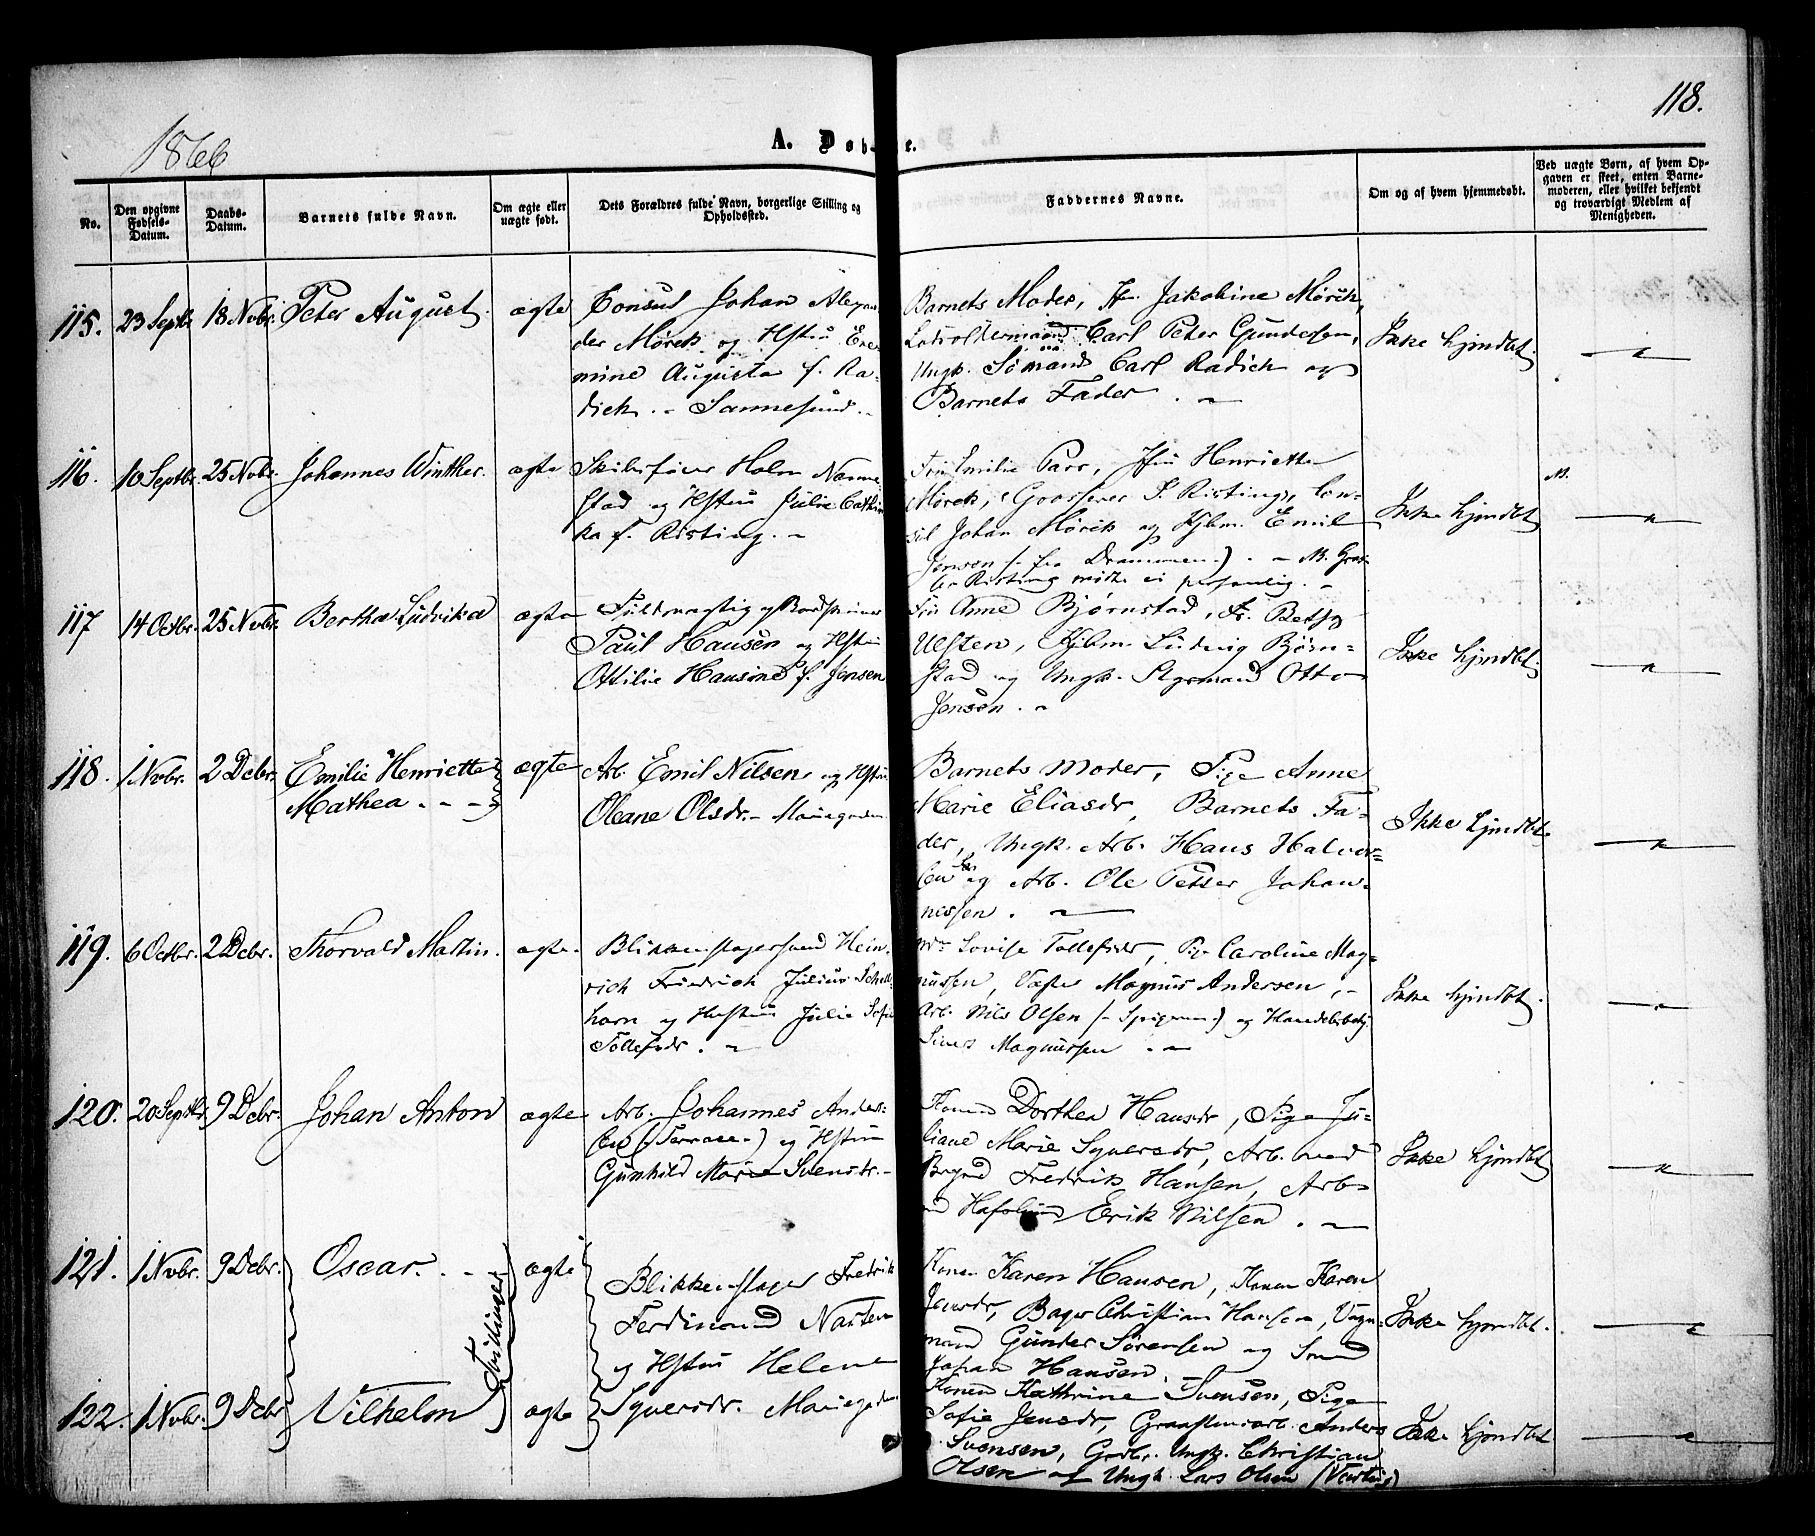 118.
1866
A. Døb-e.
No.
Den opgivne
Fødsels-
Datum.
Daabs-
Datum.
Barnets fulde Navn.
Om ægte eller
uægte født.
Dets Forældres fulde Navn, borgerlige Stilling og
Opholdssted.
Faddernes Navne.
Om og af hvem hjemmedøbt.
Ved uægte Børn, af hvem Op-
gaven er skeet, enten Barne-
moderen, eller hvilket bekjendt
og troværdigt Medlem af
Menigheden.
115. 23 Septbr. 18 Novbr. Peter August. ægte
Consul Johan Alexan
der Mørch og Hstru
mine Augusta f. Ra-
dich. - Sannesund. -
Barnets Moder, Fr. Jakobine Mørch,
Lodsoldermand Carl Peter Gundersen,
Ungk. Sømand Carl Radich og
Barnets Fader. -
Ikke hjmdbt.
116. 10 Septbr. 25 Novbr. Johannes Winther. ægte
Skibsfører Holm Nanne-
stad og Hstru Julie Cathin
ka f. Risting. -
Emilie Henriette
Mørch, Grosserer Risting, Con-
sul Johan Mørch og Kjbm. Emil
Jensen (- fra Drammen -). - NB. Gros-
Risting mødte ei personlig. -
Ikke hjmdbt
NB.
117 14 Octbr. 25 Novbr. Bertha Ludvika ægte
Fuldmægtig og
Paul Hansen og Hstru
Ottilie Hansine f. Jensen
Anne Bjørnstad, Fr. Betsy
Kjbm. Ludvig Bjørn-
stad og Ungk. Styrmand Otto
Jensen. -
Ikke hjmdbt.
118. 1 Novbr. 2 Decbr. Emilie Henriette ægte
Mathea. - - -
Arb. Emil Nilsen og Hstru
Oleane Olsdr. - Mariegaden
Barnets Moder, Pige Anne
Marie Eliasdr, Barnets Fa-
der, Ungk. Arb. Hans Halvor-
sen og Arb. Ole Petter Johan-
nessen. -
Ikke hjmdbt.
119. 6 Octbr. 2 Decbr. Thorvald Martin. ægte.
Blikkenslagersvend Hein-
rich Friedrich Julius
horn og Hustru Julie Sofie
Tollefsdr. -
Lovise Tollefsdr, Pge Caroline Mag-
nussen, Magnus Andersen, -
Arb. Nils Olsen og Handelsbetj.
Magnussen. -
Ikke hjmdbt.
120. 20 Septbr. 9 Decbr. Johan Anton ægte
Arb. Johannes Anders-
sen og Hstru
Gunhild Marie Svensdr. -
Konen Dorthea Hansdr, Pige Ju-
liane Marie Syversdr, Arb. ved
Fredrik Hansen, Arb.
Hafslund Erik Nilsen. -
Ikke hjmdbt
121. 1 Novbr. 9 Decbr. Oscar. - ægte
Tvillinger
Blikkenslager Fredrik
Ferdinand
og Hstru Helene
Syversdr. Mariegaden
Konen Karen Hansen, Konen Karen
Jensdr, Bager Christian Hansen, Vogn-
mand Gunder Sørensen og
Johan Hansen.
Ikke hjmdbt.
122. 1 Novbr. 9 Decbr Vilhelm ægte
Konen Kathrine Svensen, Pige
Sofie Jensdr, Anders
Svensen, Ungk. Christian
Olsen og Ungk. Lars Olsen
Ikke hjmdbt